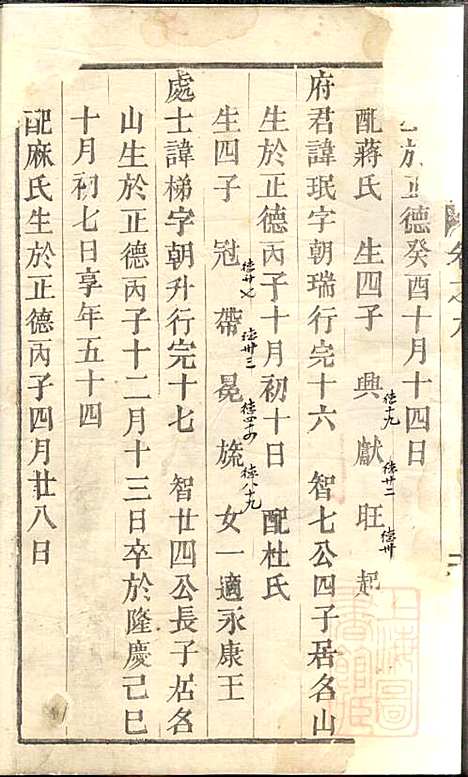 於正德癸酉十月十四日
配蔣氏 生四子 興 獻 旺 起
德十九 德廿二 德卅
府君諱珉字朝瑞行完十六 智七公四子居名山
生於正德丙子十月初十日 配杜氏
生四子 冠 帶 冕 旒 女一適永康王
德卅三 德八十九
處士諱梯字朝升行完十七 智廿四公長子居名
山生於正德丙子十二月十三日卒於隆慶己巳
十月初七日享年五十四
配麻氏生於正德丙子四月廿八日